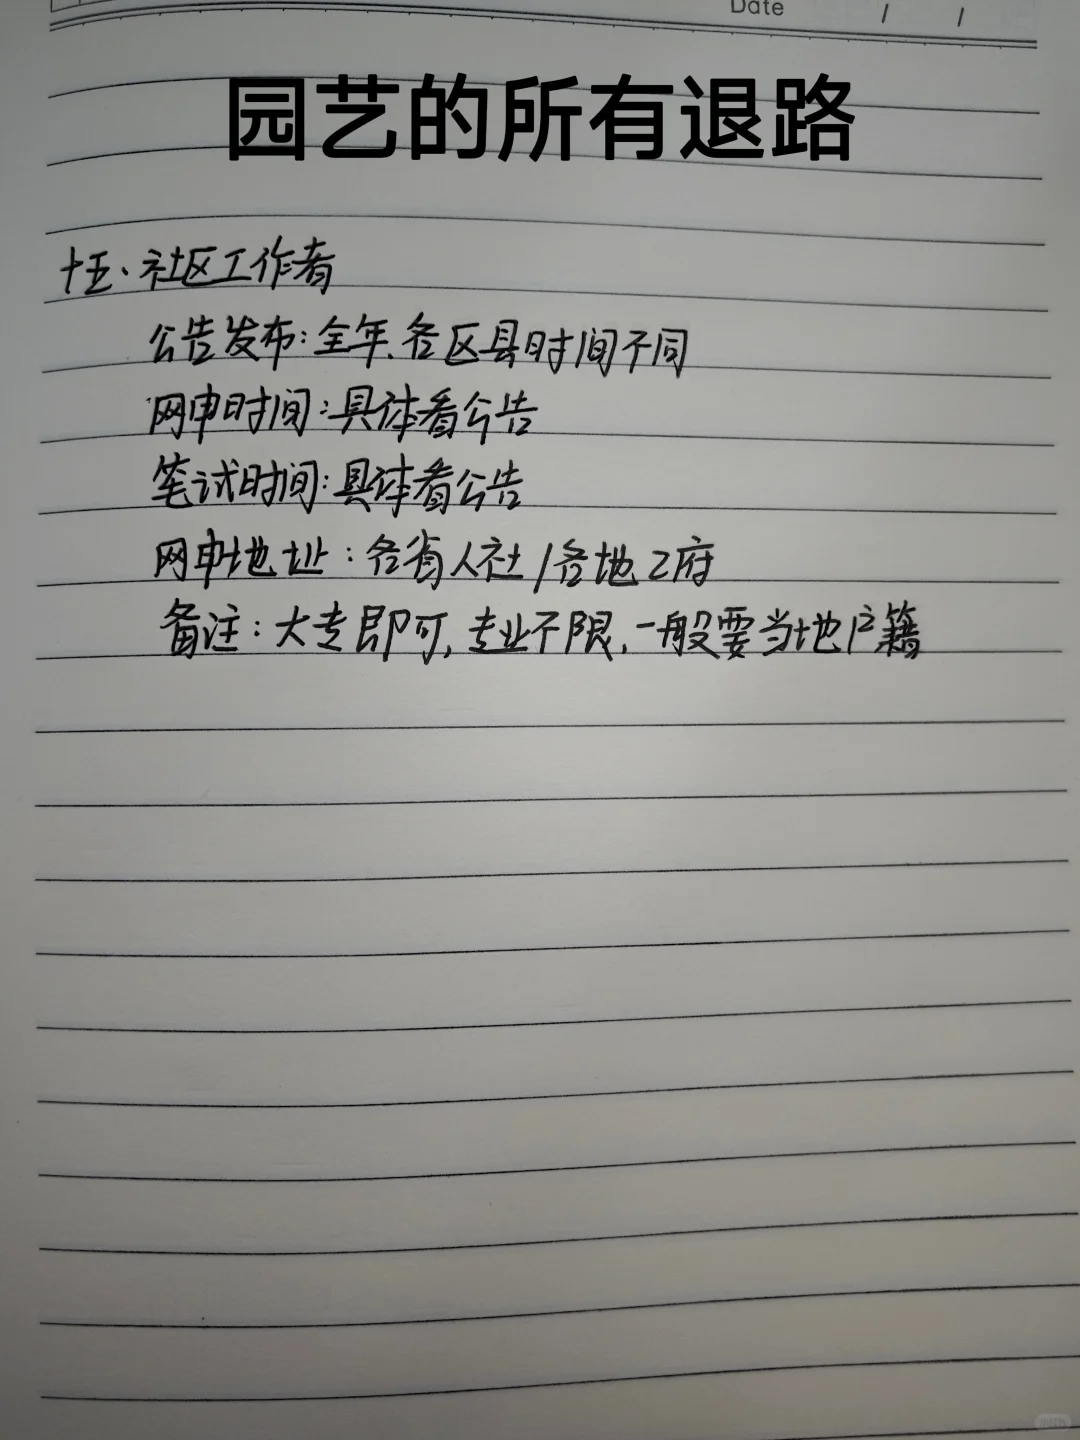 Date / /
园艺的所有退路
十五、社区工作者
公告发布:全年、各区县时间不同
网申时间:具体看公告
笔试时间:具体看公告
网申地址:各省人社/各地Z府
备注:大专即可,专业不限,一般要当地户籍